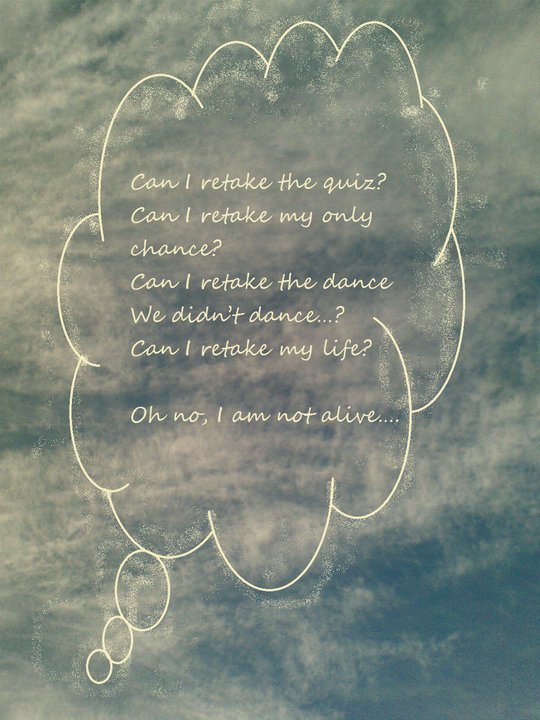 Can I retake the quiz?
Can I retake my only
chance?
Can I retake the dance
We didn't dance...?
Can I retake my life?
Oh no, I am not alive....